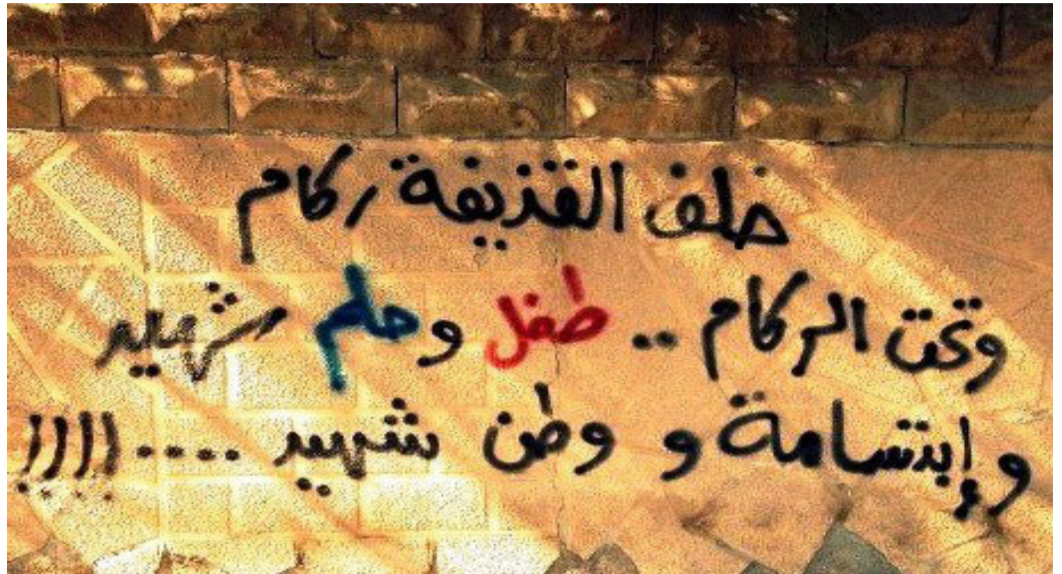 خلف القذيفة ركام
وتحت الركام .. طفل وحلم شهيد
وإبتسامة و وطن شهيد .....!!!!!